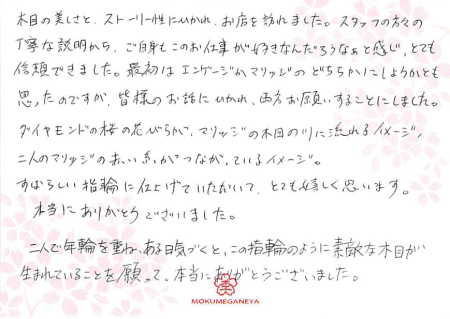 木目の美しさと、ストーリー性にひかれ、お店を訪れました。スタッフの方々の
丁寧な説明から、ご自身もこのお仕事が好きなんだろうなぁと感じ、とても
信頼できました。最初はエンゲージかマリッジのどちらかにしようかとも
思ったのですが、皆様のお話にひかれ、両方お願いすることにしました。
ダイヤモンドの桜の花びらが、マリッジの木目の川に流れるイメージ、
二人のマリッジの赤い糸がつながっているイメージ。
すばらしい指輪に仕上げていただいて、とても嬉しく思います。
本当にありがとうございました。
二人で年輪を重ね、ある日気づくと、この指輪のように素敵な木目が
生まれていることを願って。本当にありがとうございました。
MOKUMEGANEYA